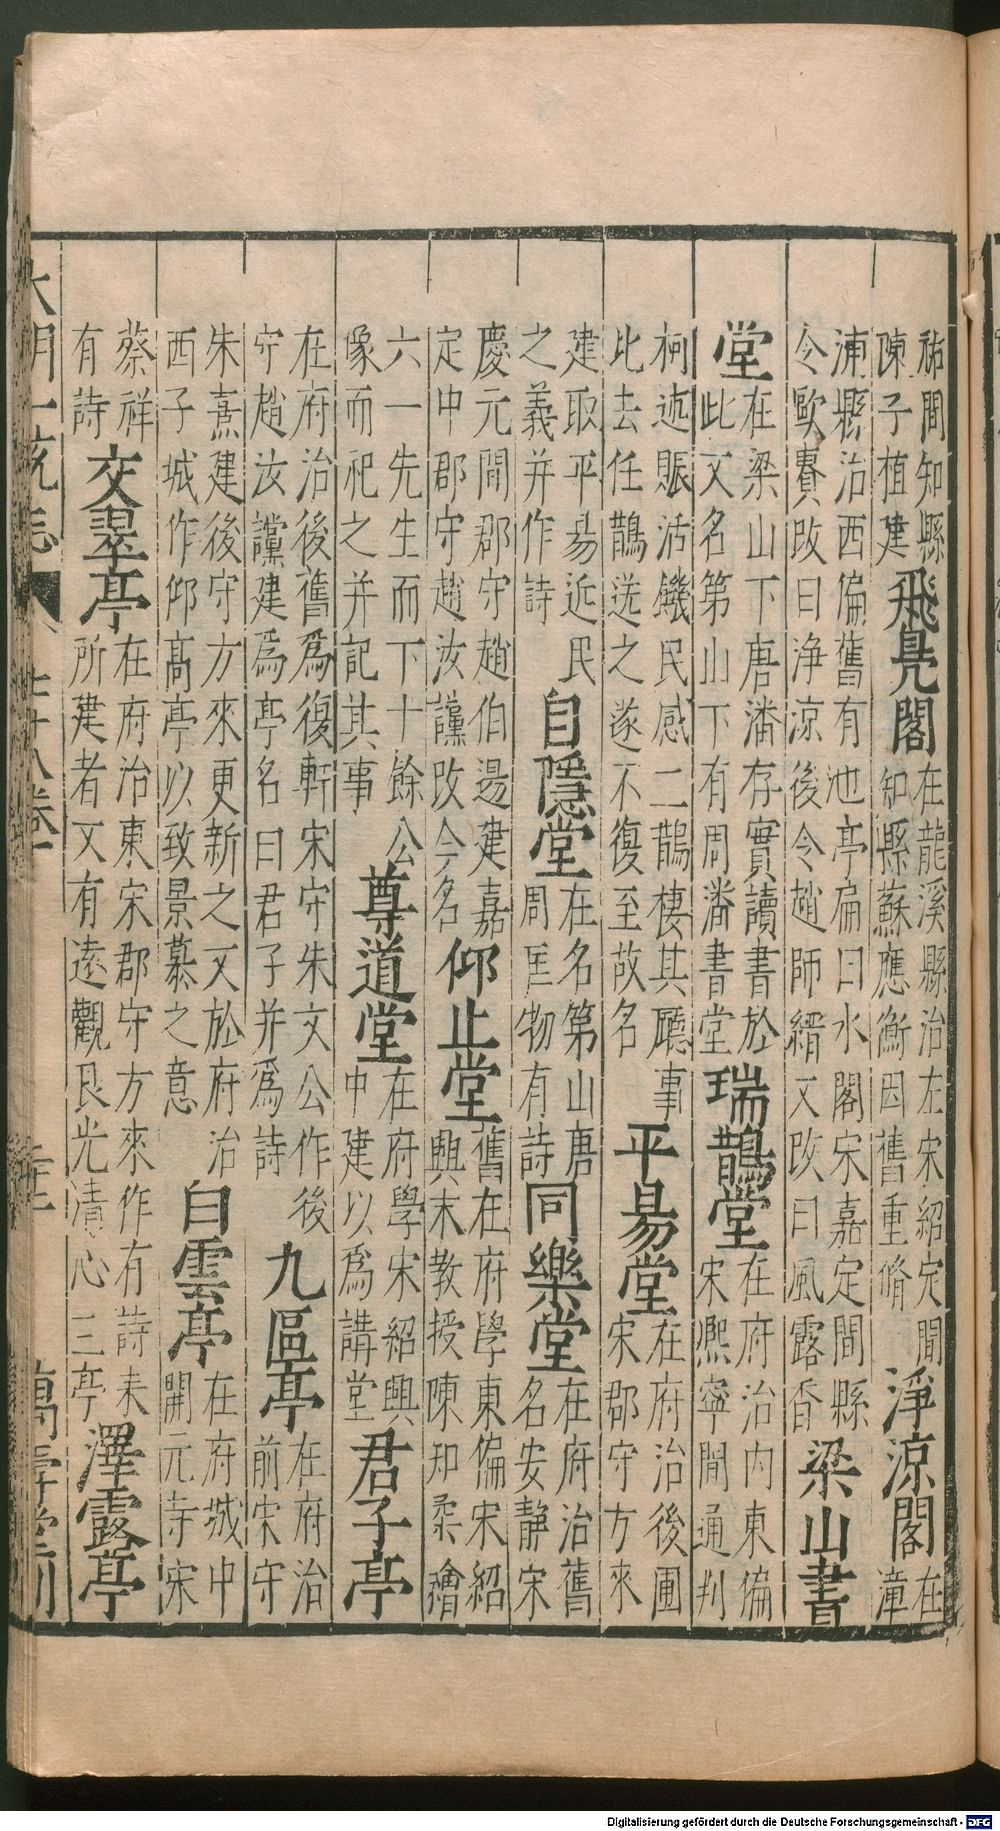 祐間知縣
陳子植建
飛鳧閣
在龍溪縣治左宋紹定間
知縣蘇應衡因舊重脩
淨涼閣
在
漳
浦縣治西偏舊有池亭扁曰水閣宋嘉定間縣
令歐賽改曰淨涼後令趙師縉又改曰風露香
梁山書
堂
在梁山下唐潘存實讀書於
此又名第山下有周潘書堂
瑞鵲堂
在府治內東偏
宋熈寧間通判
柯述賑活饑民感二鵲棲其廳事
比去任鵲送之遂不復至故名
平易堂
在府治後圃
宋郡守方來
建取平易近民
之義并作詩
自隱堂
在名第山唐
周匡物有詩
同樂堂
在府治舊
名安靜宋
慶元間郡守趙伯逿建嘉
定中郡守趙汝讜改今名
仰止堂
舊在府學東偏宋紹
興末教授陳知柔繪
六一先生而下十餘公
像而祀之并記其事
尊道堂
在府學宋紹興
中建以為講堂
君子亭
在府治後舊為復軒宋守朱文公作後
守趙汝讜建為亭名曰君子并為詩
九區亭
在府治
前宋守
朱熹建後守方來更新之又於府治
西子城作仰高亭以致景慕之意
白雲亭
在府城中
開元寺宋
蔡祥
有詩
交翠亭
在府治東宋郡守方來作有詩耒
所建者又有遠觀艮光清心三亭
澤露亭
大明一統志
七十八卷
二十一
萬壽堂刊
Digitalisierung gefördert durch die Deutsche Forschungsgemeinschaft - DFG